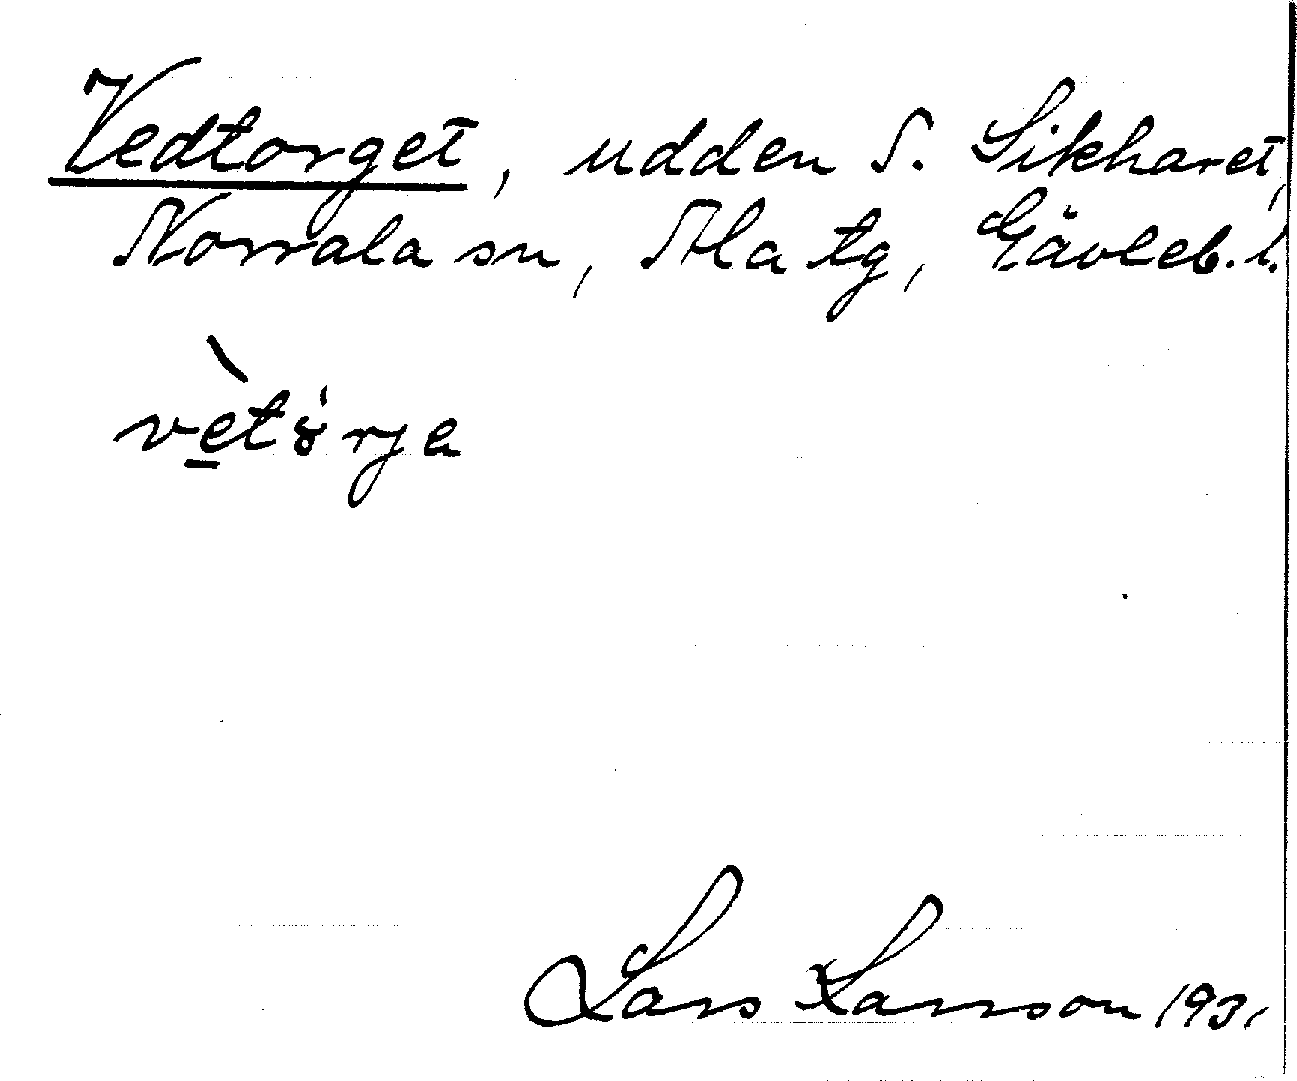 Vedtorget, udden S. Sikharet,
Norrala sn, Ala tg, Gävleb. l.
vètörja
Lars Larsson 1931